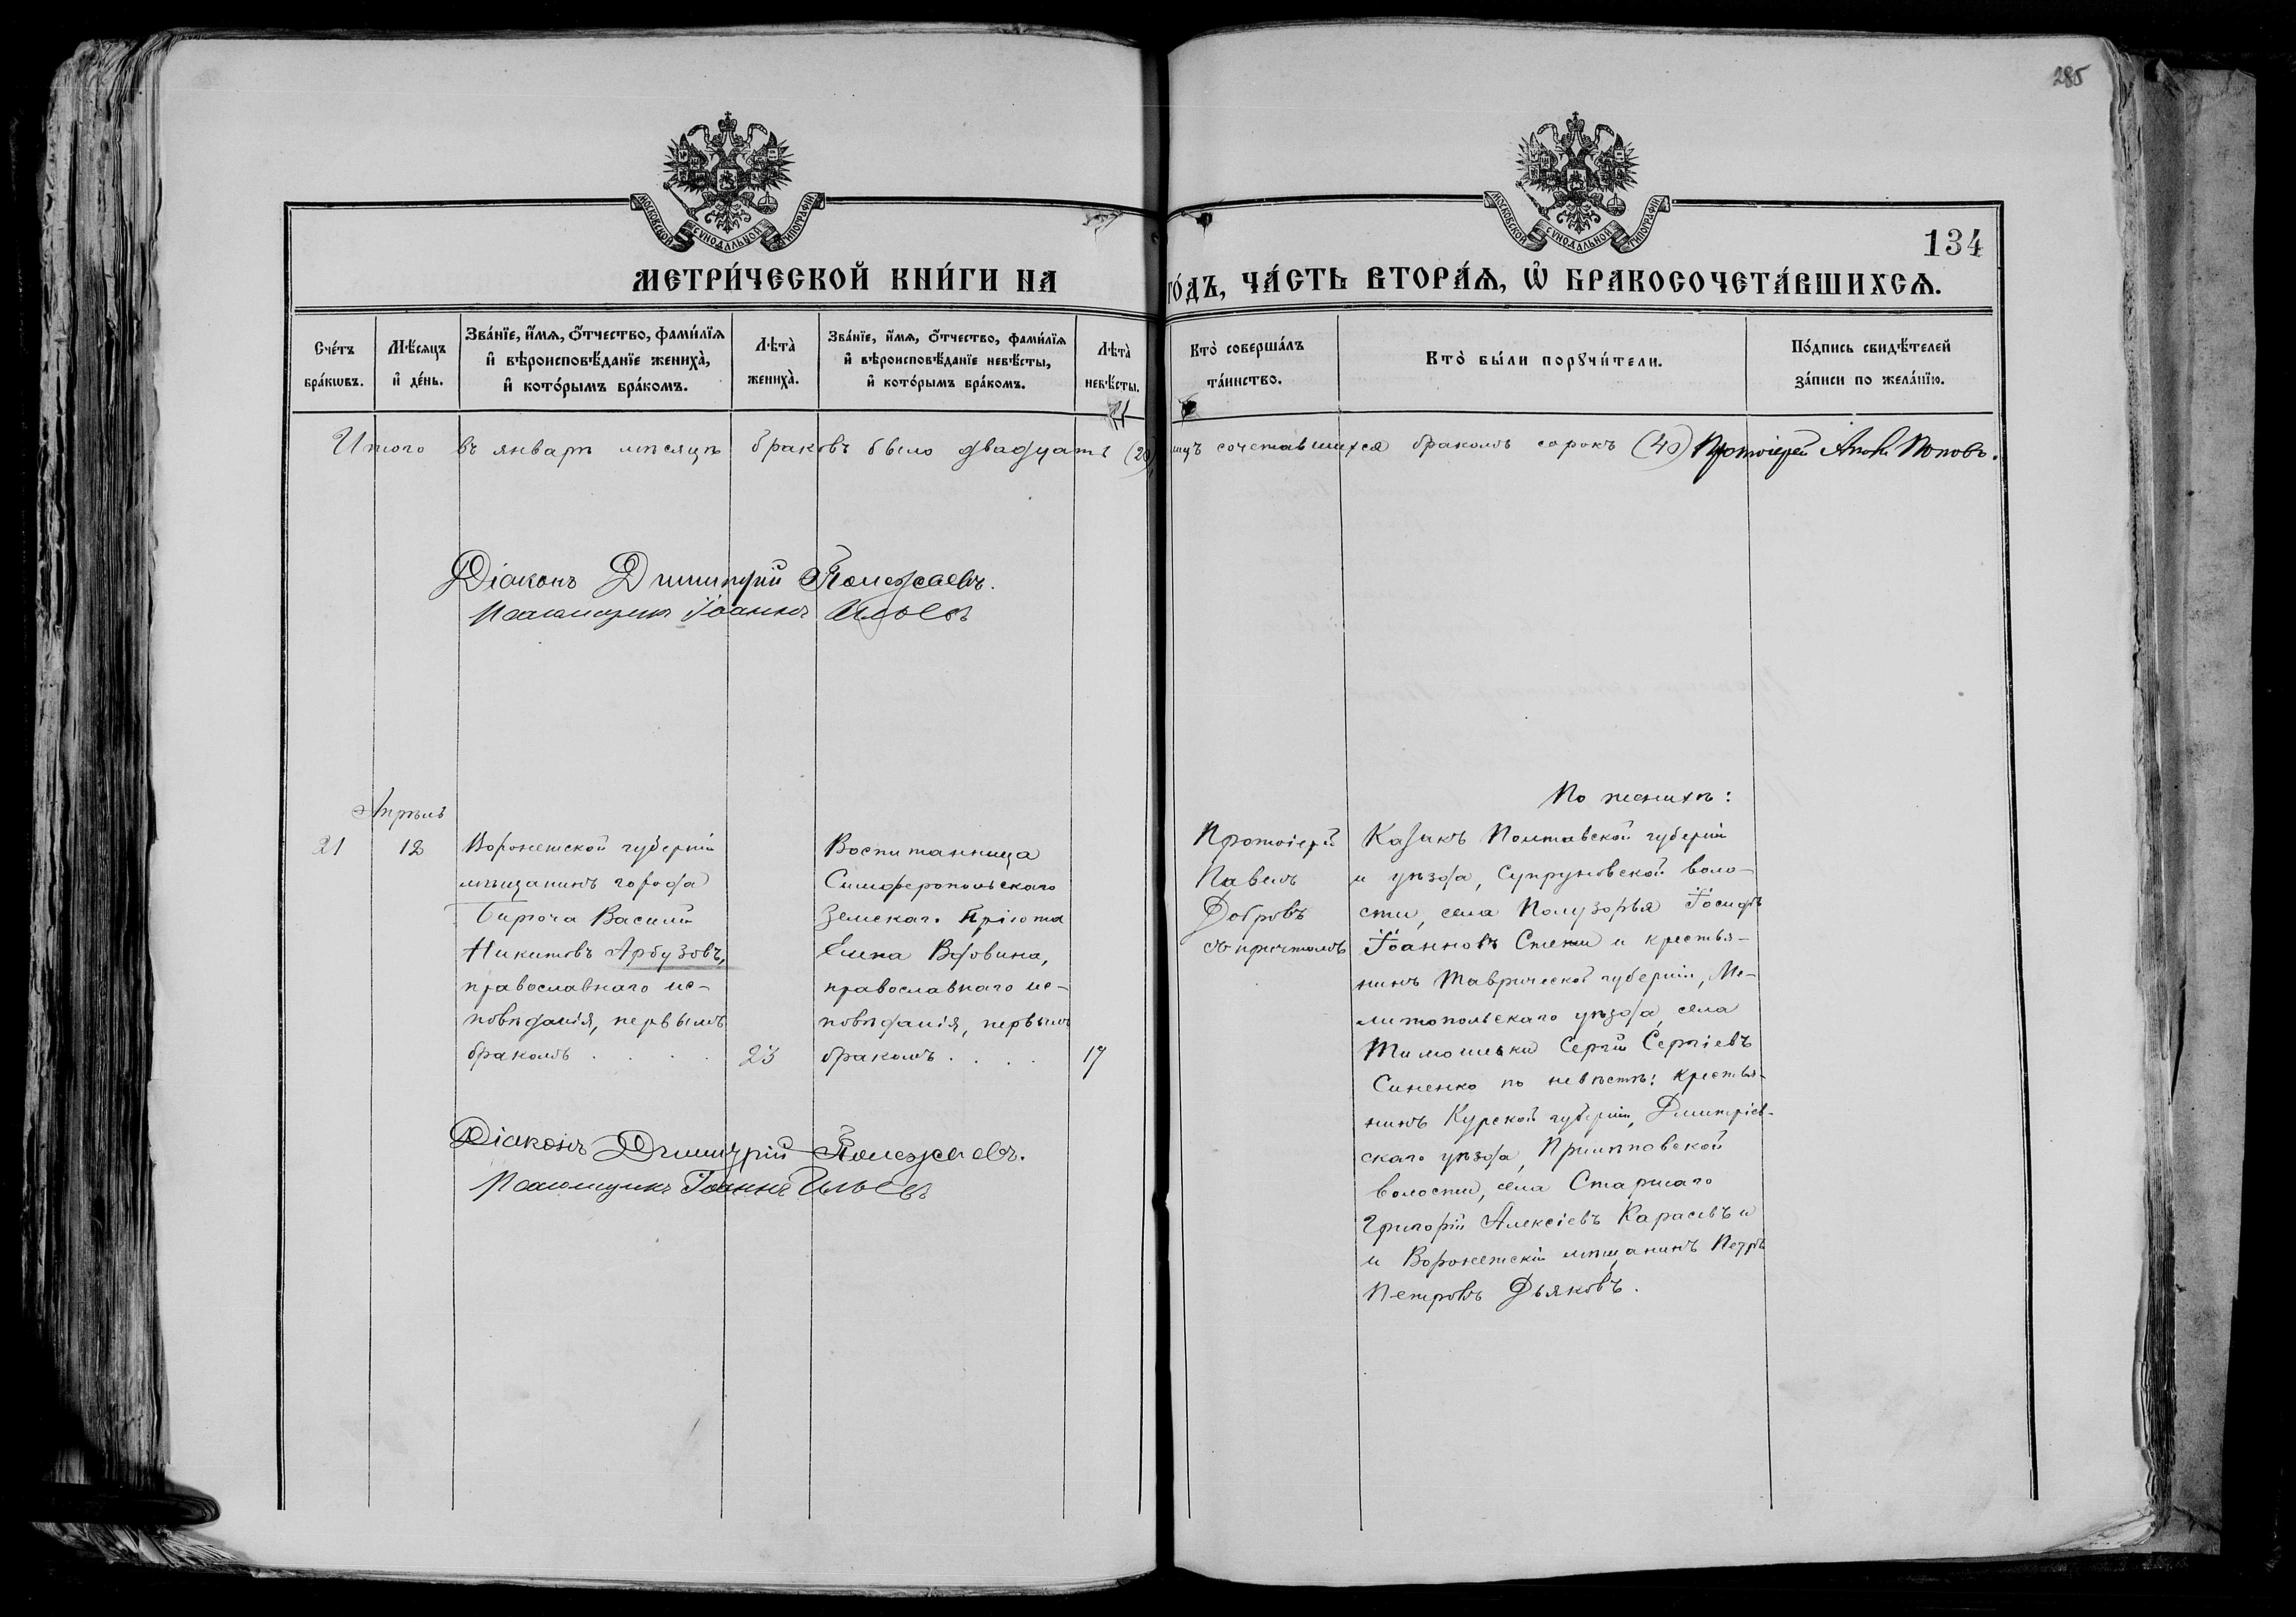 285
МОСКОВСКОЙ СѴНОДАЛЬНОЙ ТИПОГРАФІИ
МОСКОВСКОЙ СѴНОДАЛЬНОЙ ТИПОГРАФІИ
134
МЕТРИ́ЧЕСКОЙ КНИ́ГИ НА ГО́ДЪ, ЧА́СТЬ ВТОРА́Ѧ, Ѡ БРАКОСОЧЕТА́ВШИХСѦ.
Сче́тъ бра́кѡвъ.
Мѣ́сяцъ и де́нь.
Зва́нїе, и́мѧ, ѻ҆́тчество, фами́лїѧ и вѣроисповѣ́данїе жениха̀, и кото́рымъ бра́комъ.
Лѣта̀ жениха̀.
Зва́нїе, и́мѧ, ѻ҆́тчество, фами́лїѧ и вѣроисповѣ́данїе невѣ́сты, и кото́рымъ бра́комъ.
Лѣта̀ невѣ́сты.
Кто̀ соверша́лъ та́инство.
Кто̀ бы́ли порꙋчи́тели.
По́дпись свидѣ́телей за́писи по жела́нїю.
Итого въ январѣ мѣсяцѣ браковъ было двадцать (20), лицъ сочетавшихся бракомъ сорокъ (40) Протоіерей Поповъ.
Діаконъ Димитрій Полежаевъ.
Псаломщикъ Іоаннъ Ильевъ
Апрѣль
21
12
Воронежской губерніи
мѣщанинъ города
Бирюча Василій
Никитовъ Арбузовъ,
православнаго ис-
повѣданія, первымъ
бракомъ . . . .
23
Воспитанница
Симферопольскаго
Земскаго Пріюта
Елена Вдовина,
православнаго ис-
повѣданія, первымъ
бракомъ . . . .
17
Протоіерей
Павелъ
Добровъ
съ причтомъ
По женихѣ:
Казакъ Полтавской губерніи
и уѣзда, Супруновской воло-
сти, села Полузорья Іосифъ
Іоанновъ и крестья-
нинъ Таврической губерніи, Ме-
литопольскаго уѣзда, села
Тимошевки Сергій Сергіевъ
Синенко по невѣстѣ: крестья-
нинъ Курской губерніи, Дмитріев-
скаго уѣзда,
волости, села Старшаго
Григорій Алексіевъ Карасевъ и
и Воронежскій мѣщанинъ Петръ
Петровъ Дьяковъ.
Діаконъ Димитрій Полежаевъ.
Псаломщикъ Іоаннъ Ильевъ